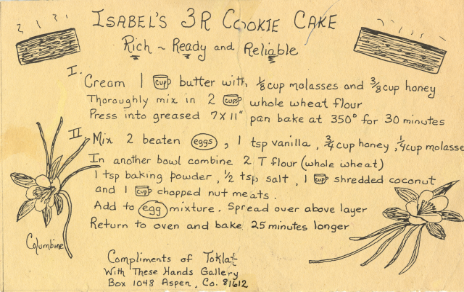 ISABEL'S 3R COOKIE CAKE
Rich ~ Ready and Reliable
I. Cream 1 cup butter with ⅛ cup molasses and ⅜ cup honey
Thoroughly mix in 2 cup whole wheat flour
Press into greased 7X11" pan bake at 350° for 30 minutes
II Mix 2 beaten eggs, 1 tsp vanilla, ¾ cup honey, ¼ cup molasses
In another bowl combine 2 T flour (whole wheat)
1 tsp baking powder, ½ tsp salt, 1 cup shredded coconut
and 1 cup chopped nut meats.
Add to egg mixture. Spread over above layer
Return to oven and bake 25 minutes longer
Columbine
Compliments of Toklat
With These Hands Gallery
Box 1048 Aspen, Co. 81612